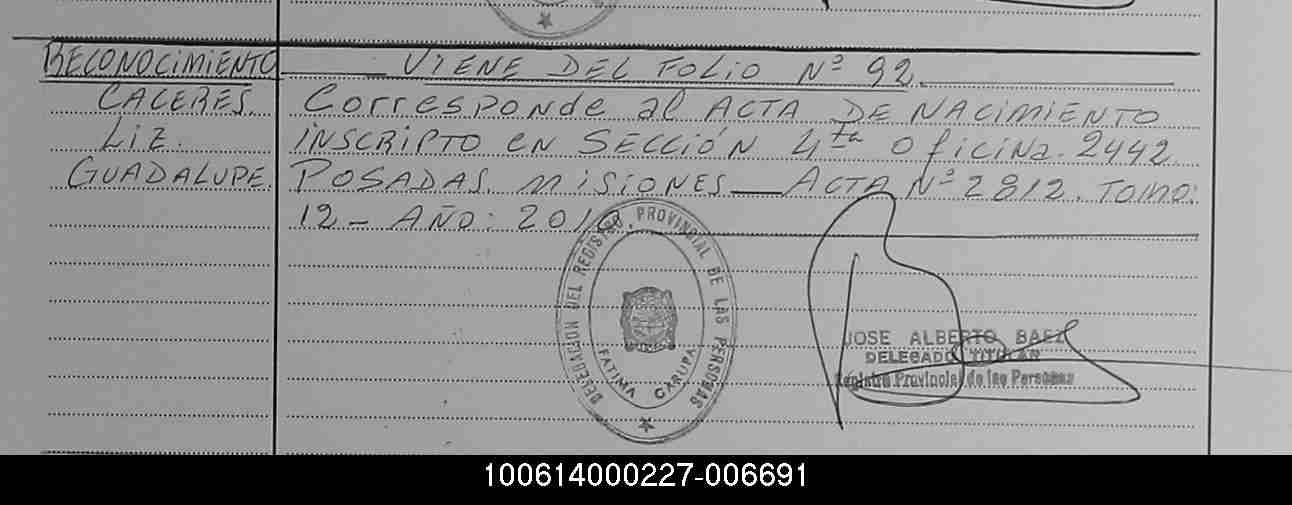 RECONOCIMIENTO VIENE DEL FOLIO Nº 92.
CACERES. Corresponde al ACTA DE NACIMIENTO
Liz. INSCRIPTO EN SECCIÓN 4ta Oficina. 2442
GUADALUPE. POSADAS. MISIONES — ACTA Nº 2812. TOMO:
12 - AÑO:
DELEGACION DEL REGISTRO PROVINCIAL DE LAS PERSONAS
FATIMA GARUPA
JOSE ALBERTO BAEZ
DELEGADO TITULAR
Registro Provincial de las Personas
100614000227-006691